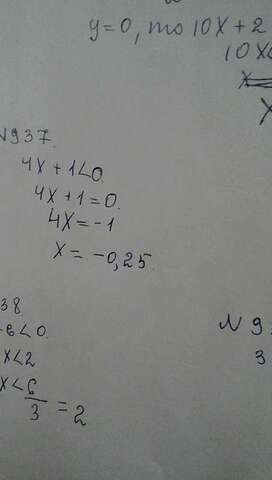 y=0, то 10x+2
10x<
x
x
N937.
4x+1<0.
4x+1=0.
4x=-1
x=-0,25.
38
-6<0.
x<2
x<6/3=2
N9
3